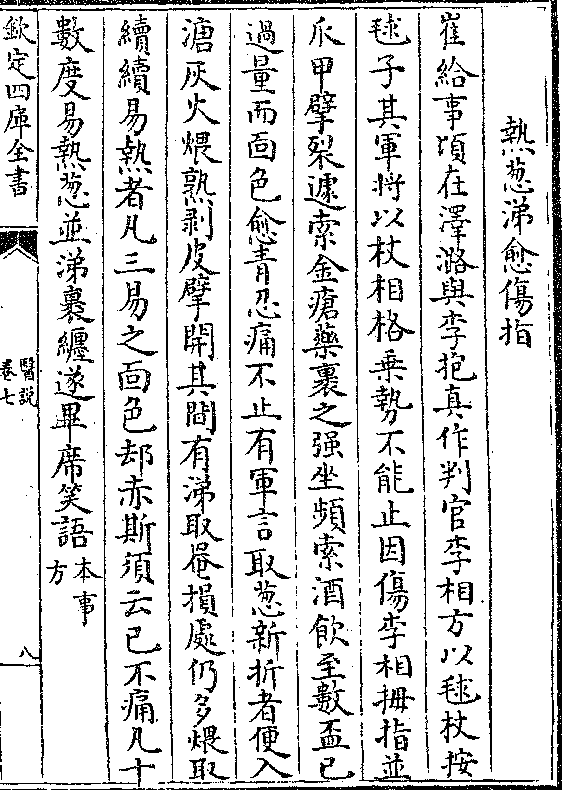 熱葱涕愈傷指
崔給事頃在澤潞與李抱真作判官李相方以毬杖按
毬子其軍將以杖相格乗勢不能止因傷李相拇指並
爪甲擘裂遽索金瘡藥裹之强坐頻索酒飲至數盃已
過量而面色愈青忍痛不止有軍言取葱新折者便入
溏灰火煨熟剥皮擘開其間有涕取罨損處仍多煨取
續續易熱者凡三易之面色却赤斯須云已不痛凡十
數度易熱葱並涕裹纒遂畢席笑語本事方
欽定四庫全書
醫説
卷七
八